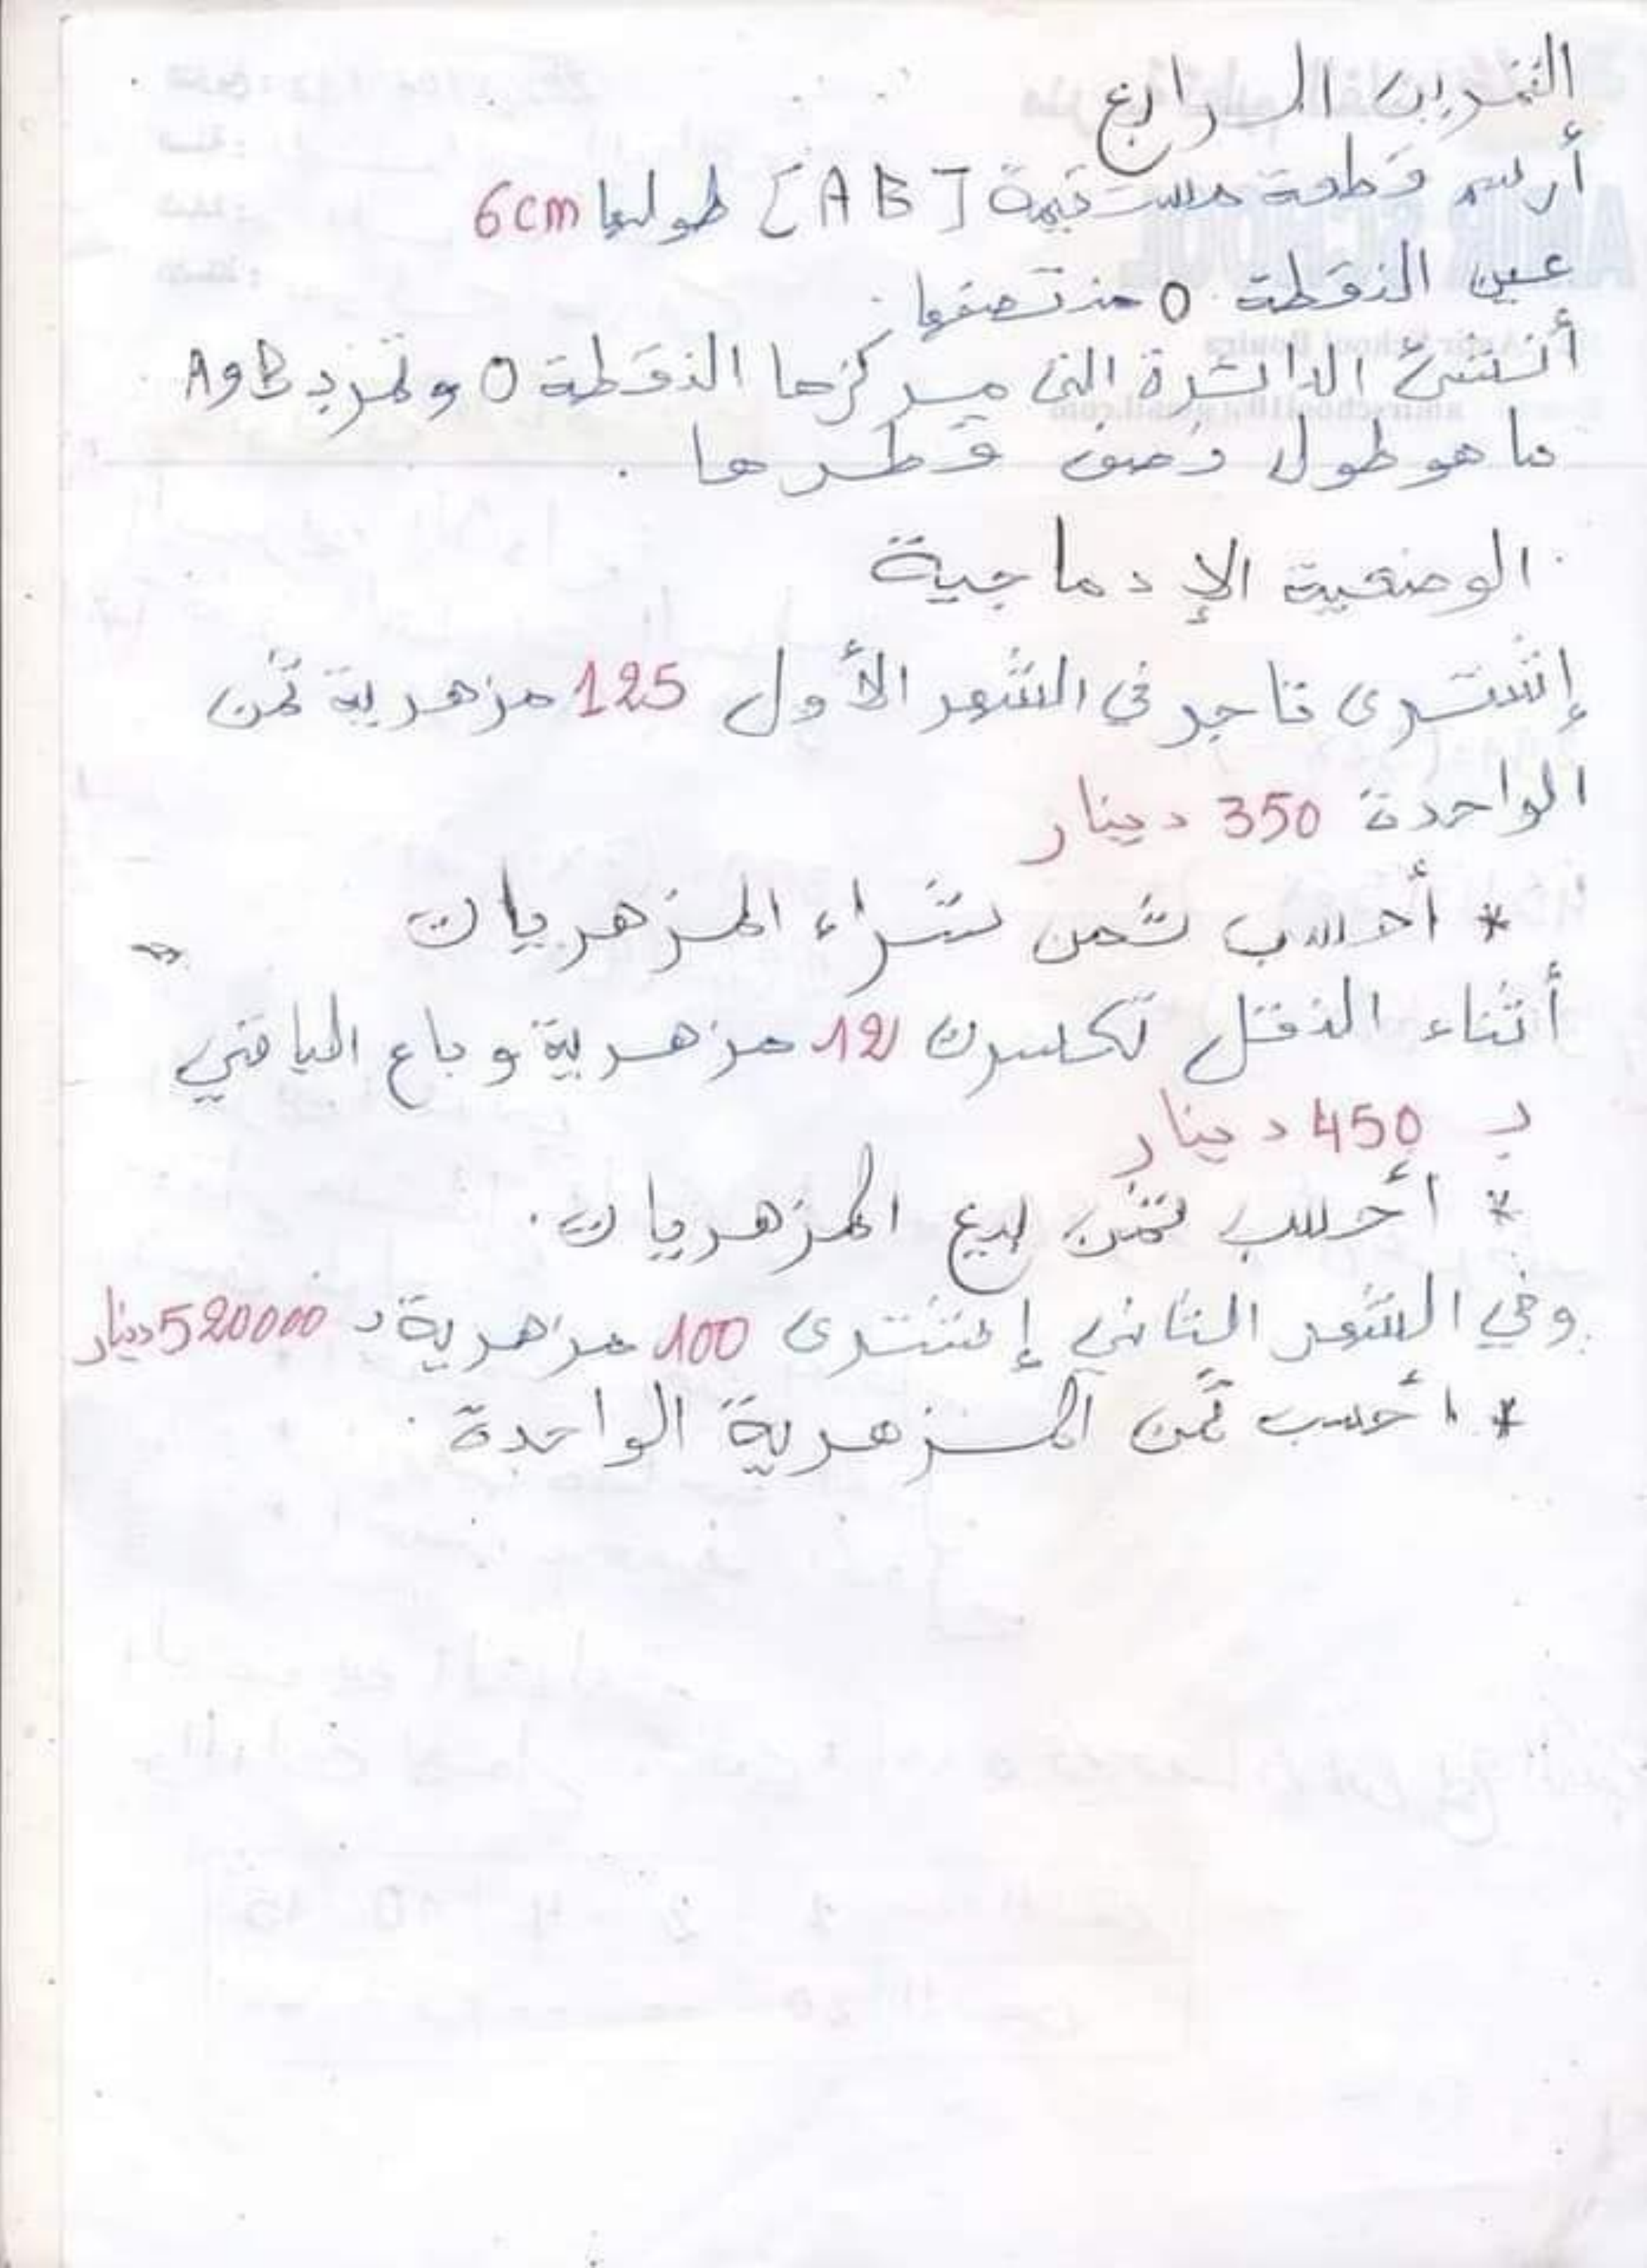 التمرين الرابع
أرسم قطعة مستقيمة [AB] طولها 6cm
عين النقطة O منتصفها.
أنشئ الدائرة التي مركزها النقطة O وتمر بـ A و B
ما هو طول نصف قطرها.
الوضعية الإدماجية
إشترى تاجر في الشهر الأول 125 مزهرية ثمن
الواحدة 350 دينار
* أحسب ثمن شراء المزهريات
أثناء النقل تكسرت 12 مزهرية وباع الباقي
بـ 450 دينار
* أحسب ثمن بيع المزهريات.
وفي الشهر الثاني إشترى 100 مزهرية بـ 520000 دينار
* أحسب ثمن المزهرية الواحدة.